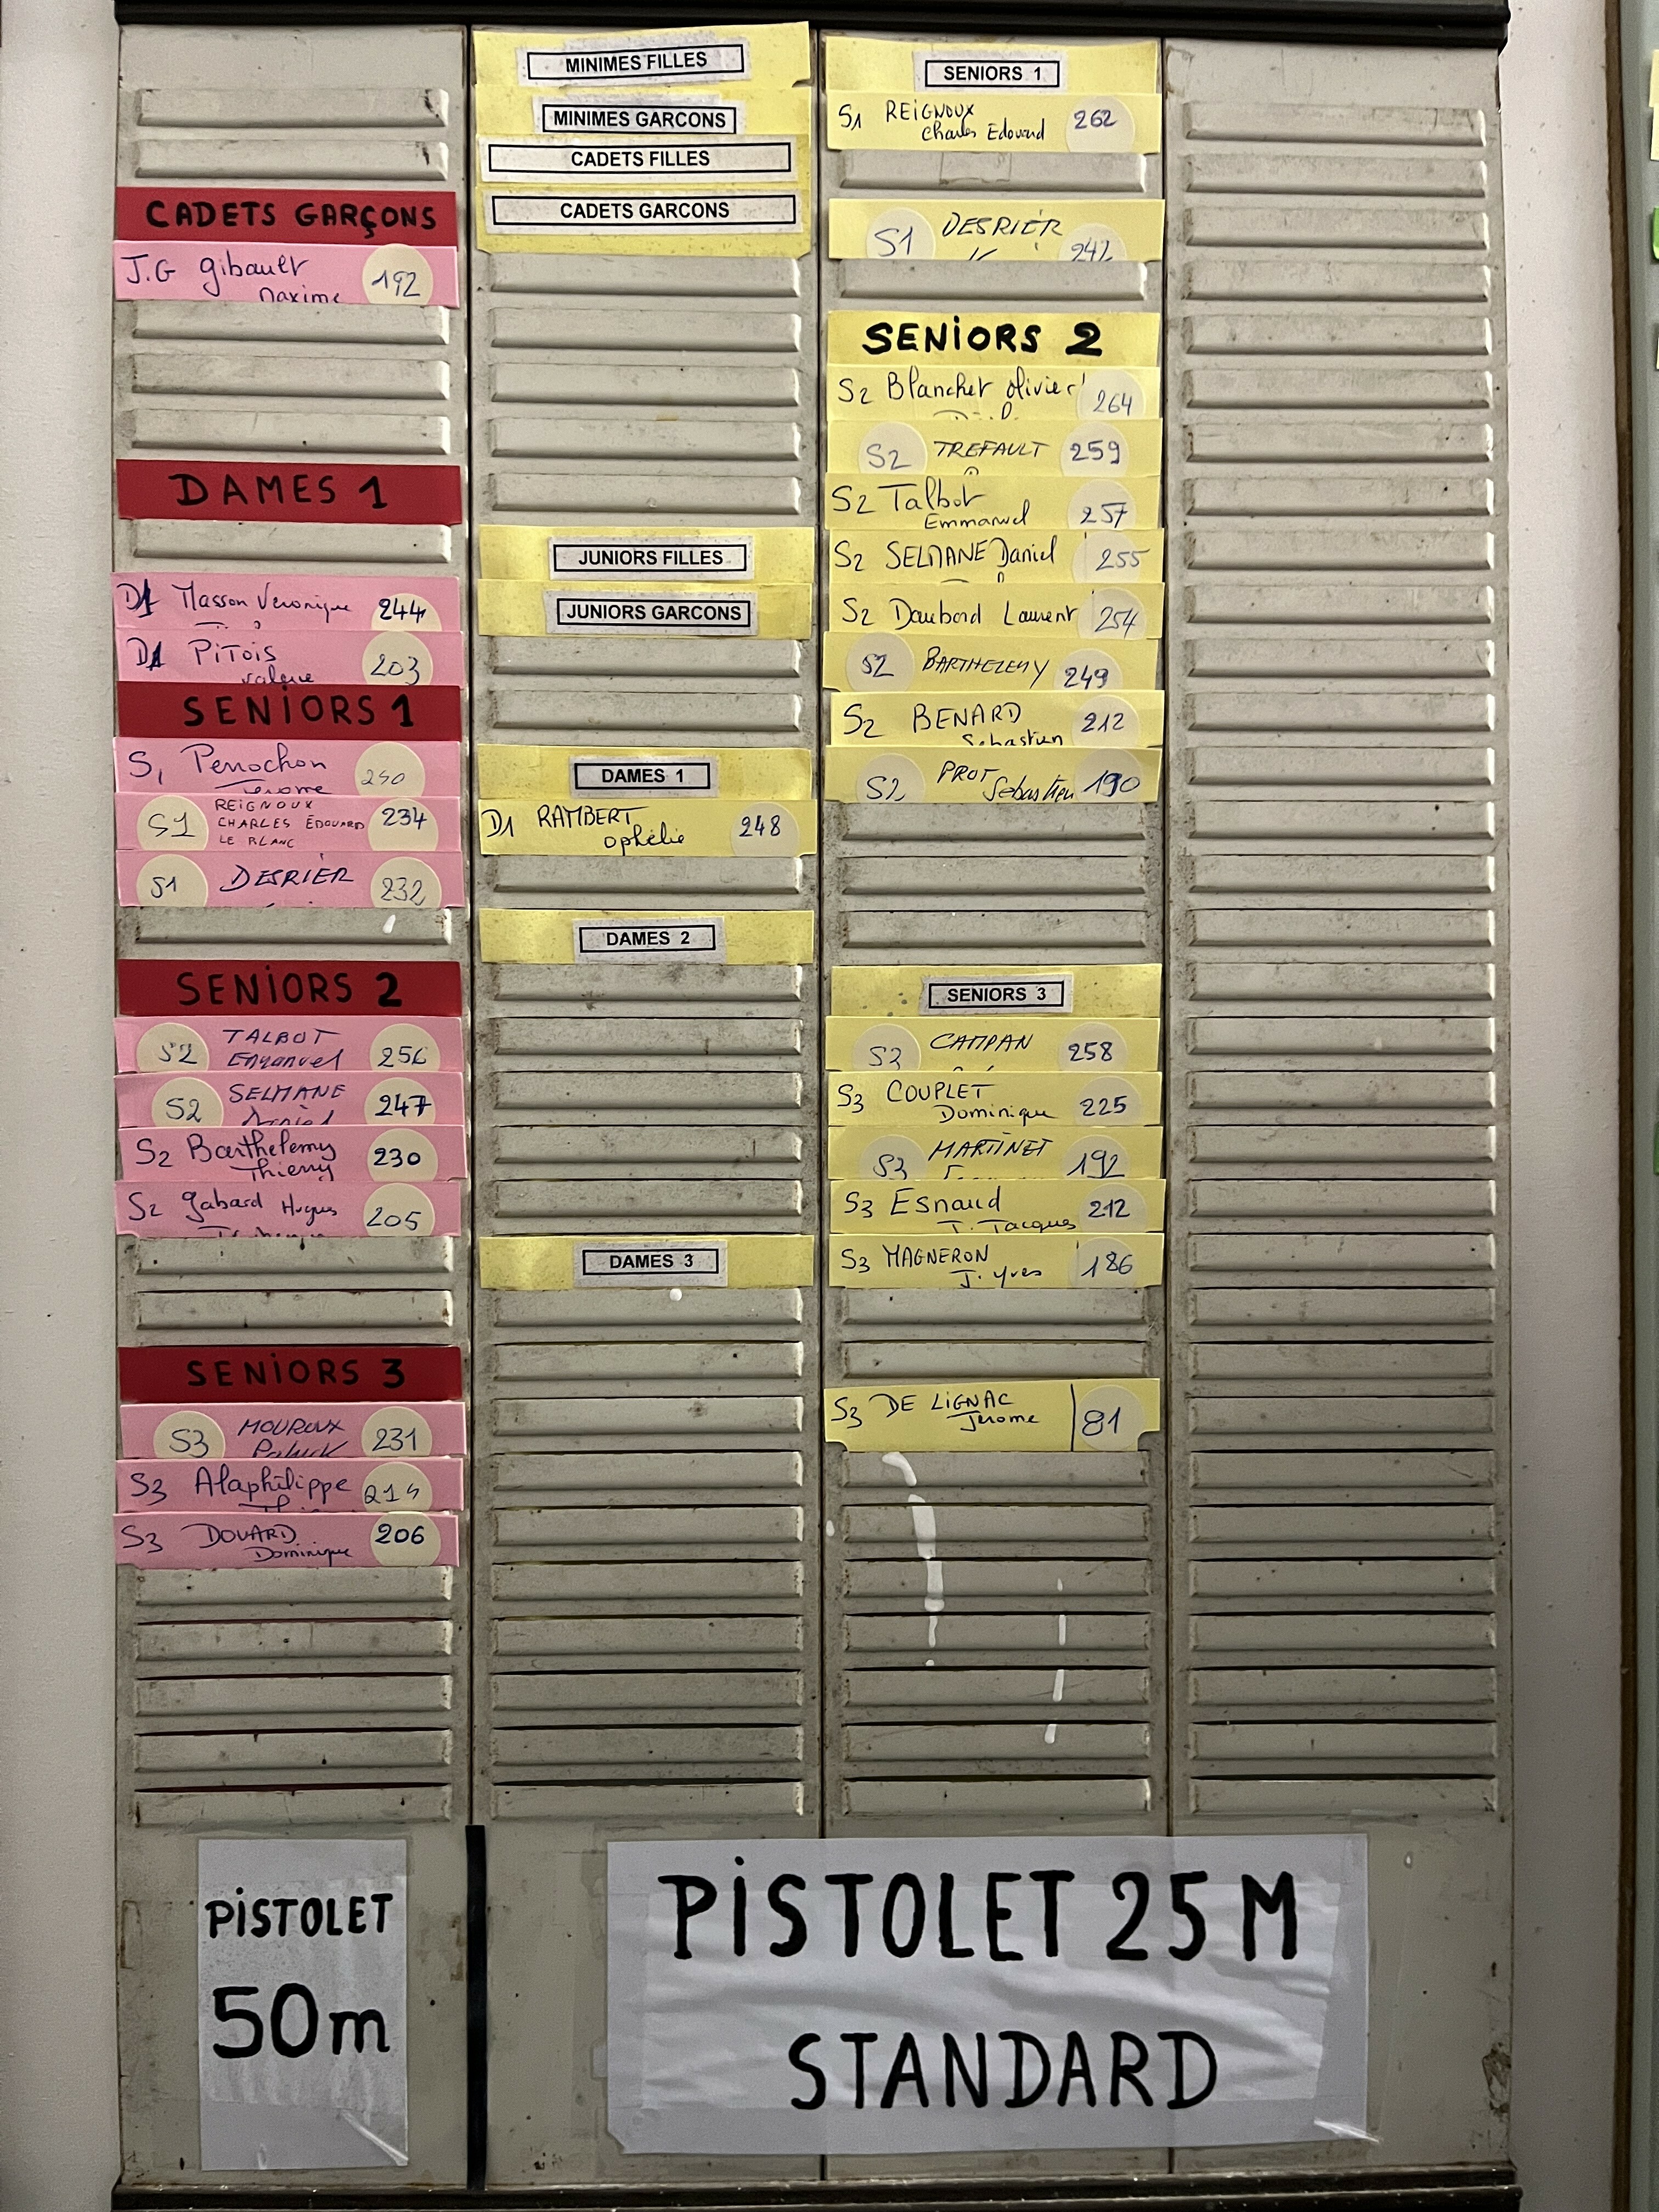 CADETS GARÇONS
J.G Gibault 192
Maxime
DAMES 1
D1 Masson Veronique 244
D1 PITOIS 203
Valerie
SENIORS 1
S1 Perrochon 240
Jerome
S1 REIGNOUX 234
CHARLES ÉDOUARD
LE BLANC
S1 DESRIER 232
SENIORS 2
S2 TALBOT 256
Emmanuel
S2 SELMANE 247
Daniel
S2 Barthelemy 230
Thierry
S2 Gabard Hugues 205
SENIORS 3
S3 MOUROUX 231
Patrick
S3 Alaphilippe 214
S3 DOUARD 206
Dominique
PISTOLET
50m
MINIMES FILLES
MINIMES GARCONS
CADETS FILLES
CADETS GARCONS
JUNIORS FILLES
JUNIORS GARCONS
DAMES 1
D1 RAMBERT 248
Ophélie
DAMES 2
DAMES 3
SENIORS 1
S1 REIGNOUX 262
Charles Edouard
S1 DESRIER
SENIORS 2
S2 Blanchet Olivier 264
S2 TREFAULT 259
S2 Talbot 257
Emmanuel
S2 SELMANE Daniel 255
S2 Daubord Laurent 254
S2 BARTHELEMY 249
S2 BENARD 212
Sebastien
S2 PROT 190
Sebastien
SENIORS 3
S3 CAMPAN 258
S3 COUPLET 225
Dominique
S3 MARTINET 192
S3 Esnaud 212
J. Jacques
S3 MAGNERON 186
J. Yves
S3 DE LIGNAC 81
Jerome
PISTOLET 25M
STANDARD